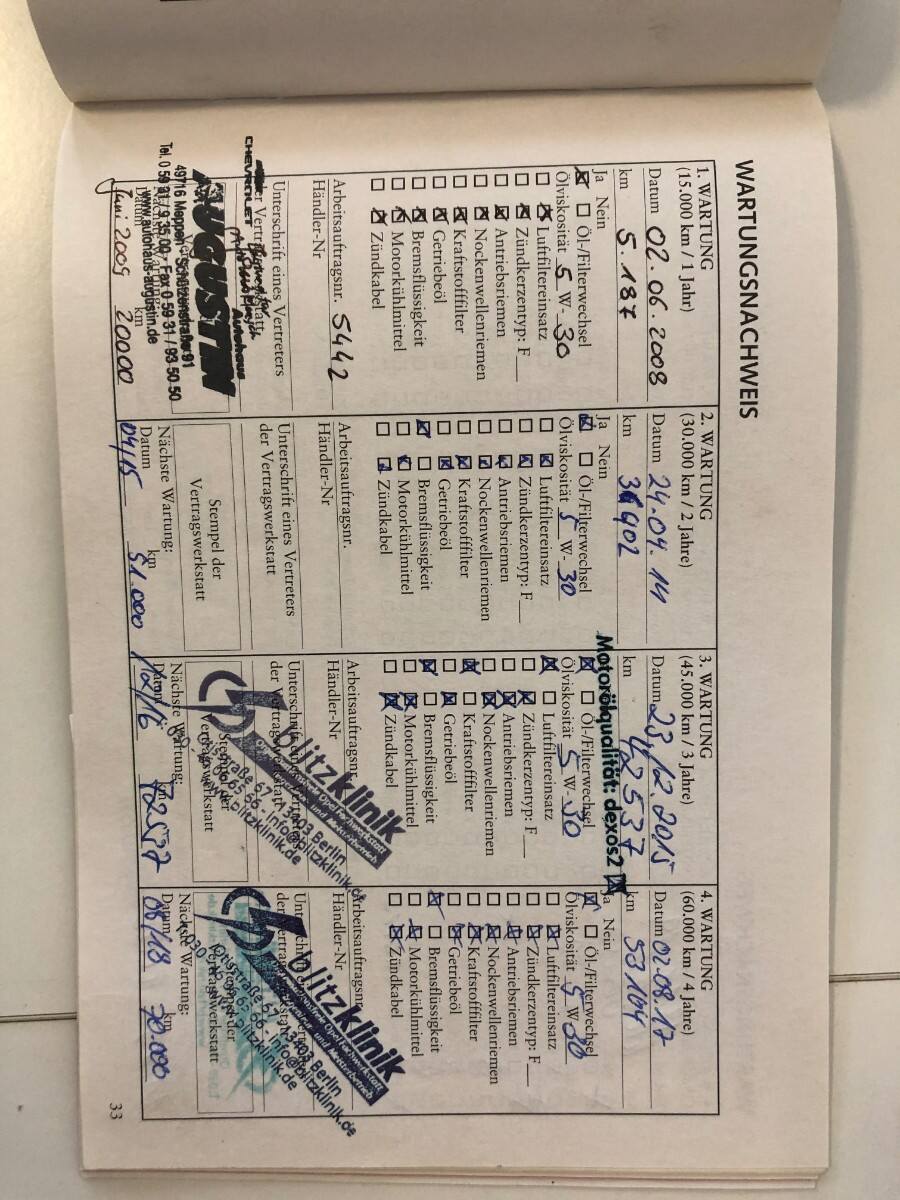 WARTUNGSNACHWEIS
1. WARTUNG
(15.000 km / 1 Jahr)
Datum 02.06.2008
km 5.187
Ja Nein
☒ ☐ Öl-/Filterwechsel
Ölviskosität 5 W- 30
☐ ☒ Luftfiltereinsatz
☐ ☒ Zündkerzentyp: F__
☐ ☒ Antriebsriemen
☐ ☒ Nockenwellenriemen
☐ ☒ Kraftstofffilter
☐ ☒ Getriebeöl
☐ ☒ Bremsflüssigkeit
☐ ☒ Motorkühlmittel
☐ ☒ Zündkabel
Arbeitsauftragsnr. 5442
Händler-Nr
Unterschrift eines Vertreters
der Vertragswerkstatt
CHEVROLET
Autohaus
AUGUSTIN
49716 Meppen · Schützenstraße 91
Tel. 0 59 31 / 9 35 00 · Fax 0 59 31 / 93 50 50
www.autohaus-augustin.de
Datum km
Juni 2009 20000
2. WARTUNG
(30.000 km / 2 Jahre)
Datum 24.09.14
km 36902
Ja Nein
☒ ☐ Öl-/Filterwechsel
Ölviskosität 5 W- 30
☐ ☒ Luftfiltereinsatz
☐ ☒ Zündkerzentyp: F__
☐ ☒ Antriebsriemen
☐ ☒ Nockenwellenriemen
☐ ☒ Kraftstofffilter
☐ ☒ Getriebeöl
☒ ☐ Bremsflüssigkeit
☐ ☒ Motorkühlmittel
☐ ☒ Zündkabel
Arbeitsauftragsnr.
Händler-Nr
Unterschrift eines Vertreters
der Vertragswerkstatt
Stempel der
Vertragswerkstatt
Nächste Wartung:
Datum km
09/15 51.000
3. WARTUNG
(45.000 km / 3 Jahre)
Datum 23.12.2015
km 42537
Motorölqualität: dexos2 ☒
☒ ☐ Öl-/Filterwechsel
Ölviskosität 5 W- 30
☒ ☐ Luftfiltereinsatz
☐ ☒ Zündkerzentyp: F__
☐ ☒ Antriebsriemen
☐ ☒ Nockenwellenriemen
☒ ☐ Kraftstofffilter
☐ ☒ Getriebeöl
☒ ☐ Bremsflüssigkeit
☐ ☒ Motorkühlmittel
☐ ☒ Zündkabel
Arbeitsauftragsnr.
Händler-Nr
Unterschrift eines Vertreters
der Vertragswerkstatt
Stempel der
Vertragswerkstatt
blitzklinik
67 · 13403 Berlin
info@blitzklinik.de
www.blitzklinik.de
Nächste Wartung:
Datum km
12/16 72537
4. WARTUNG
(60.000 km / 4 Jahre)
Datum 02.08.17
km 53104
Ja Nein
☒ ☐ Öl-/Filterwechsel
Ölviskosität 5 W 30
☐ ☒ Luftfiltereinsatz
☐ ☒ Zündkerzentyp: F__
☐ ☒ Antriebsriemen
☐ ☒ Nockenwellenriemen
☐ ☒ Kraftstofffilter
☐ ☒ Getriebeöl
☒ ☐ Bremsflüssigkeit
☐ ☒ Motorkühlmittel
☐ ☒ Zündkabel
Arbeitsauftragsnr.
Händler-Nr
blitzklinik
67 · 13403 Berlin
info@blitzklinik.de
blitzklinik.de
Nächste Wartung:
Datum km
08/18
33